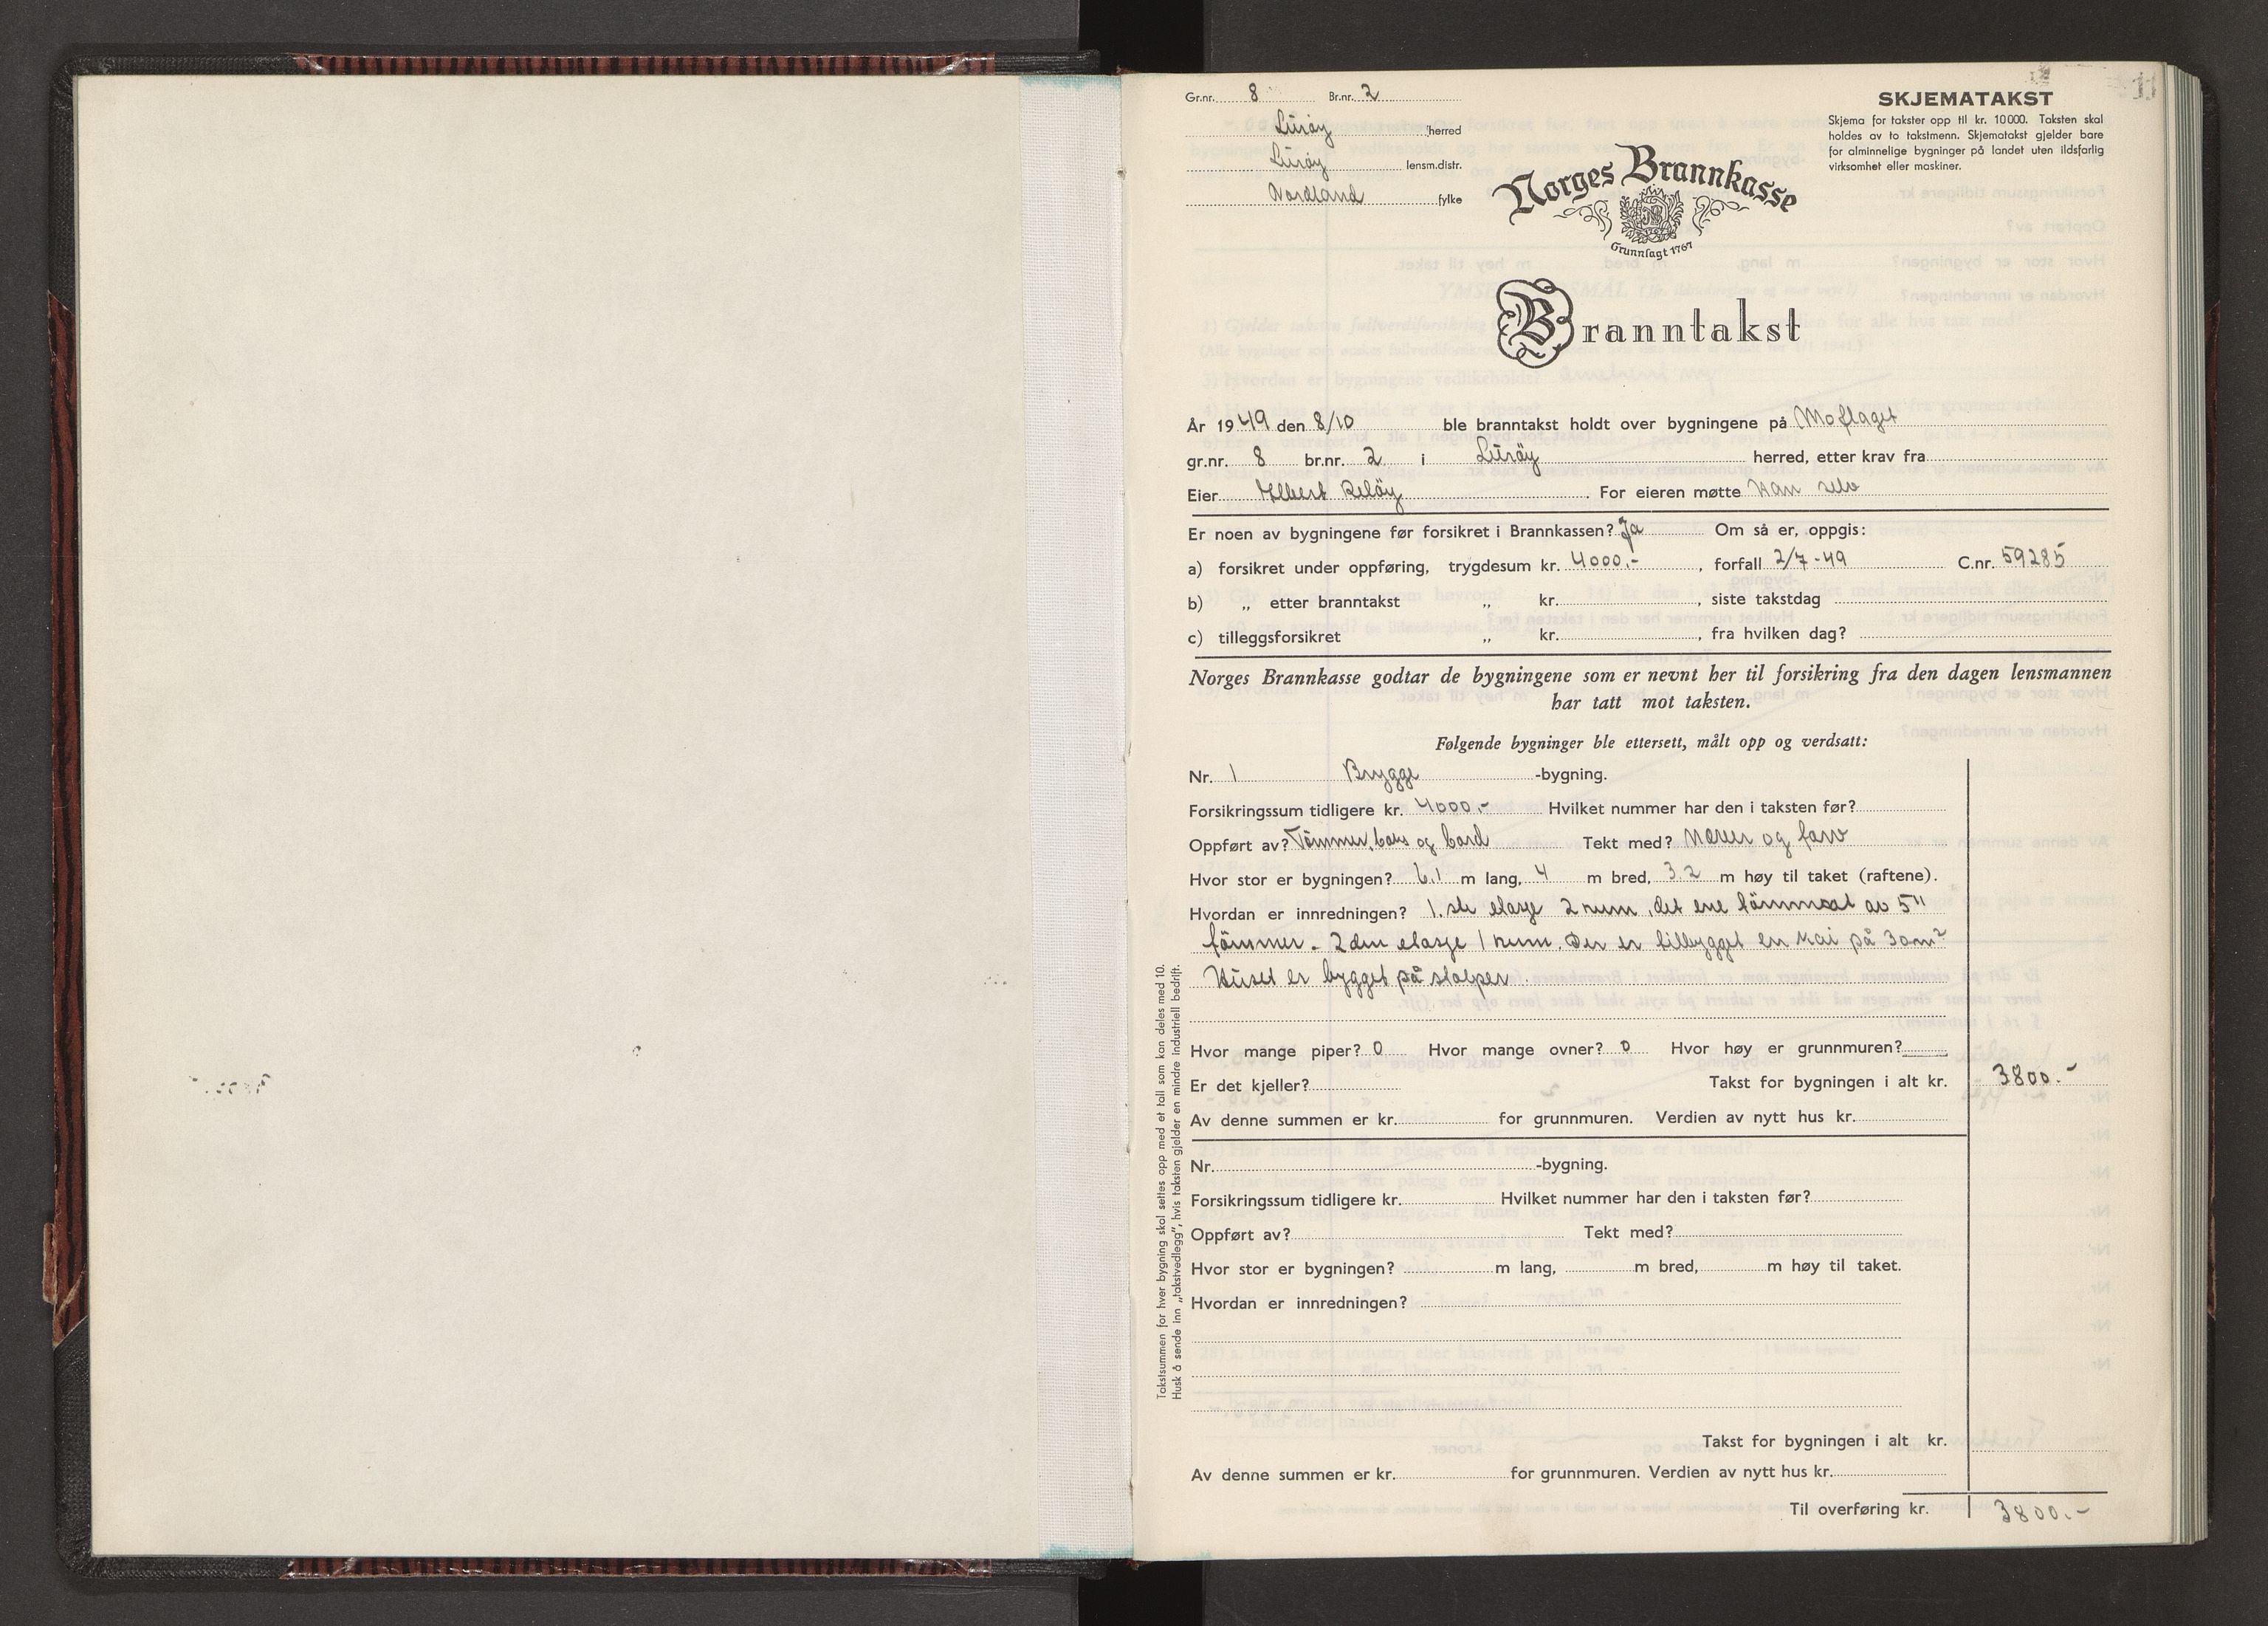 SKJEMATAKST
Skjema for takster opp til kr. 10000. Taksten skal
holdes av to takstmenn. Skjematakst gjelder bare
for alminnelige bygninger på landet uten ildsfarlig
virksomhet eller maskiner.
Gr.nr. 8 Br.nr. 2
Lurøy herred
Lurøy lensm.distr.
Nordland fylke
Norges Brannkasse
Grunnlagt 1767
Branntakst
År 1949 den 8/10 ble branntakst holdt over bygningene på Moflaget
gr.nr. 8 br.nr. 2 i Lurøy herred, etter krav fra
Eier Albert Reløy. For eieren møtte han selv
Er noen av bygningene før forsikret i Brannkassen? Ja Om så er, oppgis:
a) forsikret under oppføring, trygdesum kr. 4000.-, forfall 2/7-49 C.nr. 59285
b) „ etter branntakst „ kr. , siste takstdag
c) tilleggsforsikret „ kr. , fra hvilken dag?
Norges Brannkasse godtar de bygningene som er nevnt her til forsikring fra den dagen lensmannen
har tatt mot taksten.
Følgende bygninger ble ettersett, målt opp og verdsatt:
Nr. 1 Brygge -bygning.
Forsikringssum tidligere kr. 4000.- Hvilket nummer har den i taksten før?
Oppført av? Tømmer, og bord Tekt med? Never og
Hvor stor er bygningen? 6.1 m lang, 4 m bred, 3.2 m høy til taket (raftene).
Hvordan er innredningen? 1.ste etasje 2 rum, det ene tømmret av 5"
tømmer. - 2den etasje 1 rum. Der er tilbygget en kai på 30m²
Huset er bygget på stolper
Hvor mange piper? 0 Hvor mange ovner? 0 Hvor høy er grunnmuren?
Er det kjeller? Takst for bygningen i alt kr. 3800.-
Av denne summen er kr. for grunnmuren. Verdien av nytt hus kr.
Nr. -bygning.
Forsikringssum tidligere kr. Hvilket nummer har den i taksten før?
Oppført av? Tekt med?
Hvor stor er bygningen? m lang, m bred, m høy til taket.
Hvordan er innredningen?
Takst for bygningen i alt kr.
Av denne summen er kr. for grunnmuren. Verdien av nytt hus kr.
Til overføring kr. 3800.-
Takstsummen for hver bygning skal settes opp med et tall som kan deles med 10.
Husk å sende inn „takstvedlegg", hvis taksten gjelder en mindre industriell bedrift.